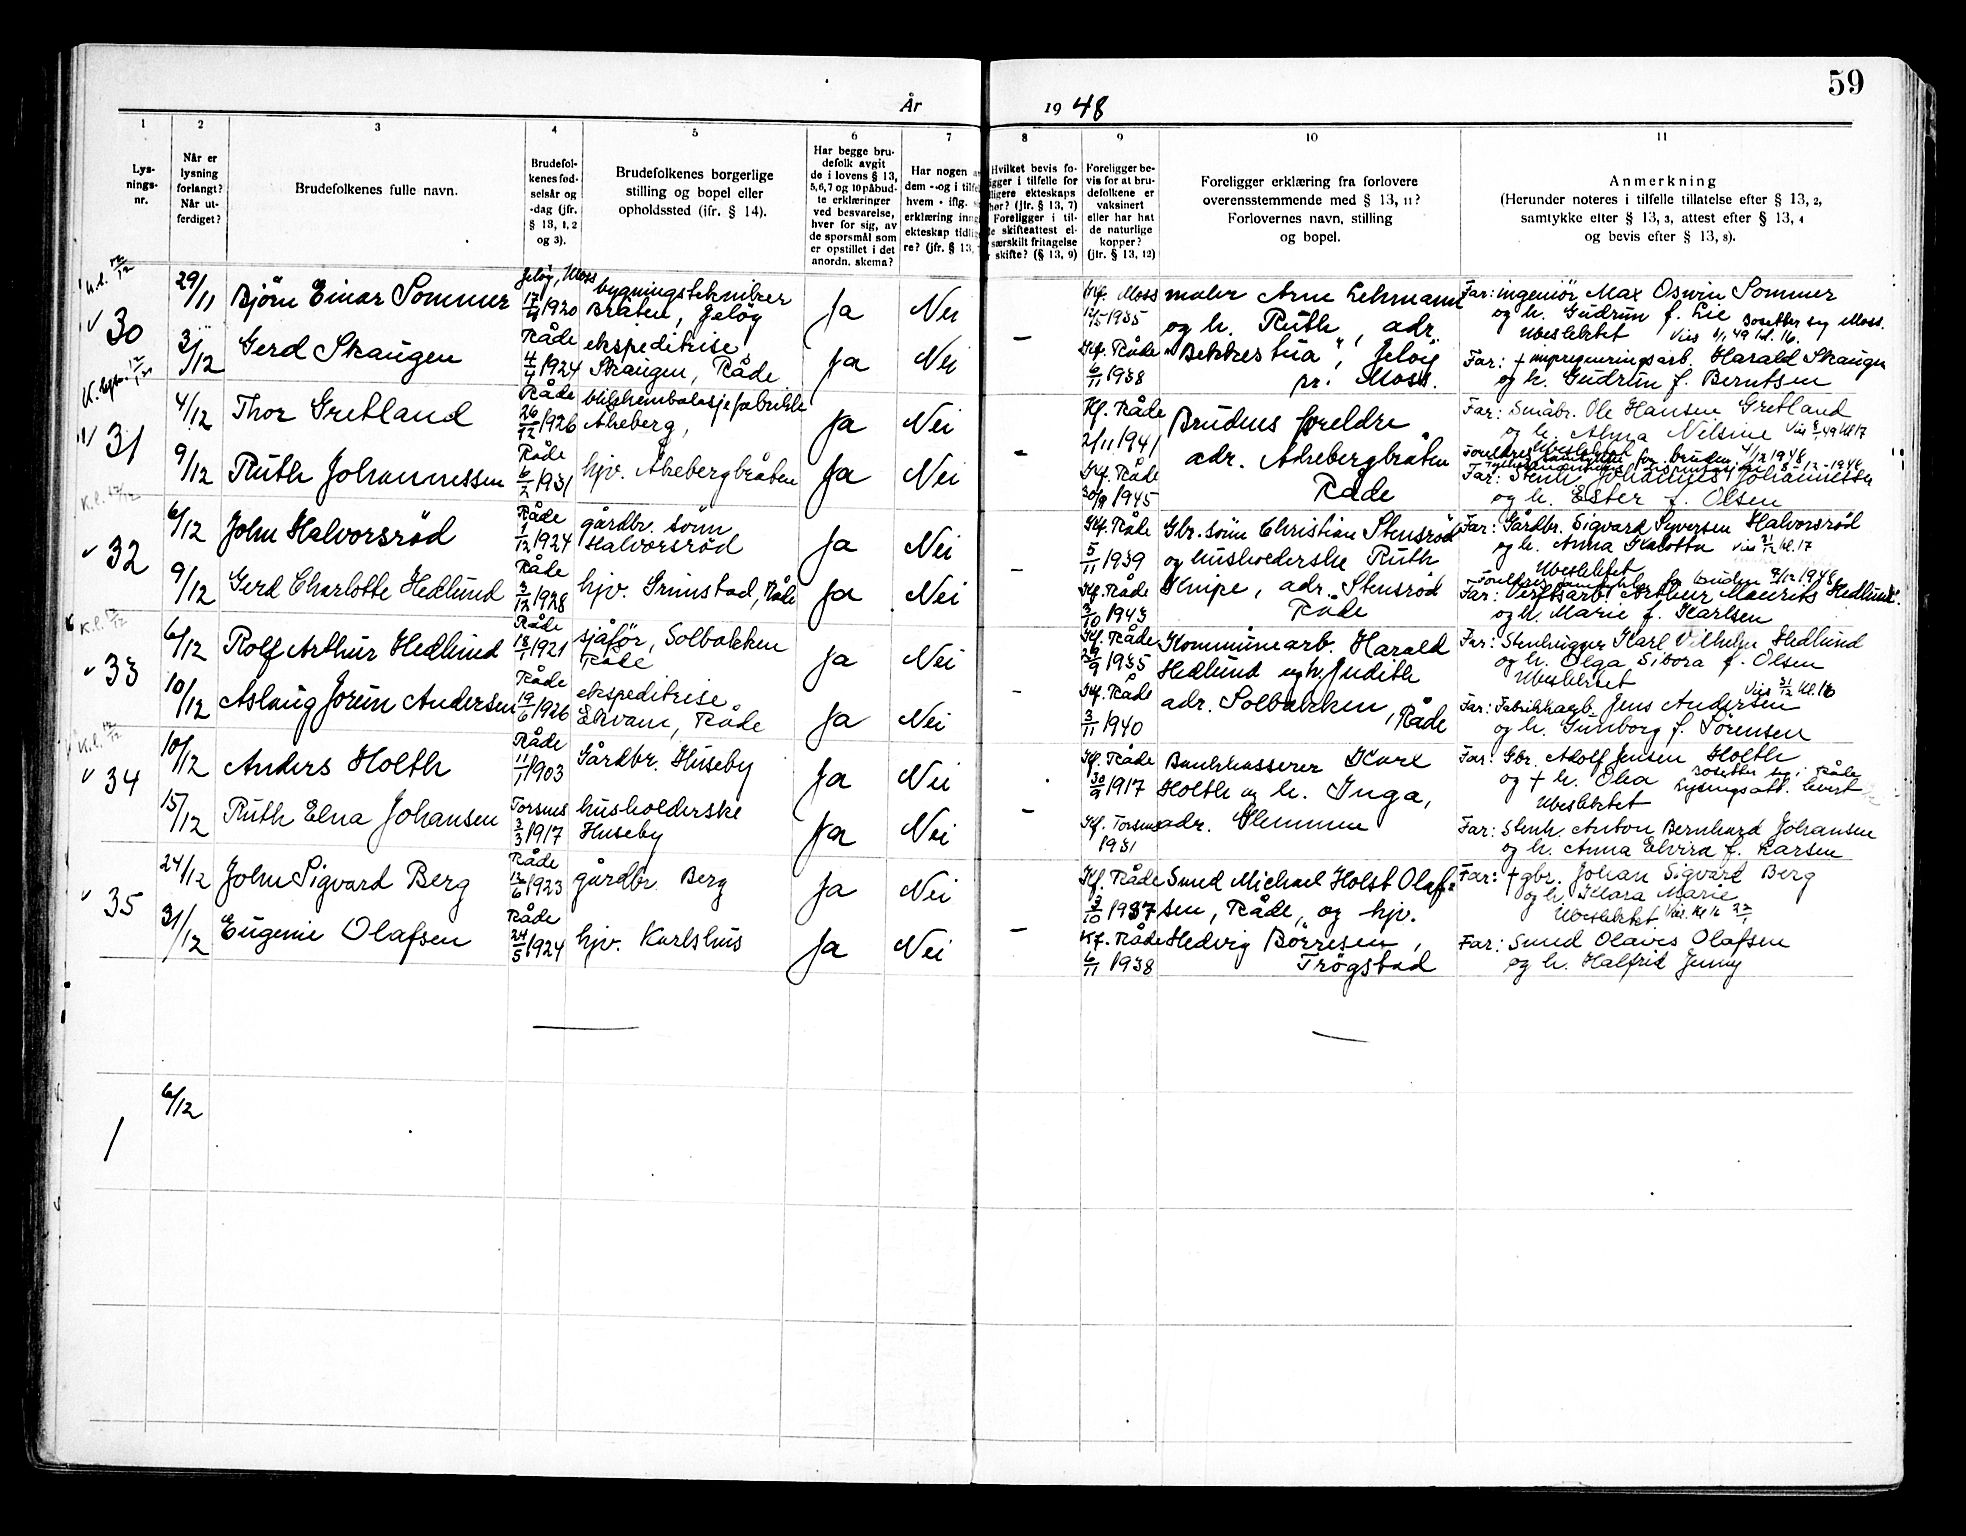 59
År 1948
1
2
3
4
5
6
7
8
9
10
11
Lys-
nings-
nr.
Når er
lysning
forlangt?
Når ut-
ferdiget?
Brudefolkenes fulle navn.
Brudefol-
kenes fød-
selsår og
-dag (jfr.
§ 13, 1, 2
og 3).
Brudefolkenes borgerlige
stilling og bopel eller
opholdssted (ifr. § 14).
Har begge bru-
defolk avgit
de i lovens § 13,
5, 6, 7 og 10 påbud-
te erklæringer
ved besvarelse,
hver for sig, av
de spørsmål som
er opstillet i det
anordn. skema?
Har nogen a
dem - og i tilfe
hvem - iflg. s
erklæring inng
ekteskap tidli
re? (jfr. § 13,
Hvilket bevis fo-
igger i tilfelle for
ligere ekteskaps
hør? (jfr. § 13, 7)
Foreligger i til-
le skifteattest el-
særskilt fritagelse
skifte? (§ 13, 9)
Foreligger be-
vis for at bru-
defolkene er
vaksinert
eller har hat
de naturlige
kopper?
(jfr. § 13, 12)
Foreligger erklæring fra forlovere
overensstemmende med § 13, 11?
Forlovernes navn, stilling
og bopel.
Anmerkning
(Herunder noteres i tilfelle tillatelse efter § 13, 2,
samtykke efter § 13, 3, attest efter § 13, 4
og bevis efter § 13, 8).
K.l. 12/12
30
29/11
3/12
Bjørn Einar Sommer
Jeløy, Moss
1920
bygningstekniker
Bråten, Jeløy
Ja
Nei
Moss
1935
maler Arne Lehmann
og h. Ruth, adr.
"Bekkestua", Jeløy
pr. Moss.
Far: ingeniør Max Oswin Sommer
og h. Gudrun f. Lie
Bosetter seg Moss.
Ubeslektet
Gerd Skaugen
Råde
4/4 1924
ekspeditrise
Skaugen, Råde
Ja
Nei
—
Kf. Råde
6/11 1938
Far: + impregneringsarb. Harald Skaugen
og h. Gudrun f. Berntsen
31
4/12
9/12
Thor Gretland
Råde
26/12 1926
blikkemballasjefabrikk
Åkeberg,
Ja
Nei
Kf. Råde
2/11 1941
Brudens foreldre
adr. Åkebergbråten
Råde
Far: Småbr. Ole Hansen Gretland
og h. Alma Nelsine
Ubeslektet
Ruth Johannessen
Råde
6/2 1931
hjv. Åkebergbråten
Ja
Nei
—
Kf. Råde
30/9 1945
Foreldres samtykke for bruden 4/12 1948
Far: Stenh. Johannes Johannessen
og h. Ester f. Olsen
K.l. 12/12
32
6/12
9/12
John Halvorsrød
Råde
1/12 1924
gårdbr. sønn
Halvorsrød
Ja
Nei
Kf. Råde
5/11 1939
Gbr. sønn Christian Stensrød
og husholderske Ruth
Knipe, adr. Stensrød
Råde
Far: Gårdbr. Sigvard Syversen Halvorsrød
og h. Anna Kalotta
Vies 31/12 kl. 17
Ubeslektet
Gerd Charlotte Hedlund
Råde
3/12 1928
hjv. Grimstad, Råde
Ja
Nei
—
Kf. Råde
3/10 1943
Foreldres samtykke for bruden 9/12 1948
Far: Verftsarb. Arthur Maurits Hedlund
og h. Marie f. Karlsen
K.l. 12/12
33
6/12
10/12
Rolf Arthur Hedlund
Råde
18/1 1921
sjåfør, Solbakken
Råde
Ja
Nei
Kf. Råde
29/9 1935
Kommunearb. Harald
Hedlund og h. Judith
adr. Solbakken, Råde
Far: Stenhugger Karl Vilhelm Hedlund
og h. Olga Sibora f. Olsen
Ubeslektet
Vies 31/12 kl. 16
Aslaug Jorun Andersen
Råde
19/6 1926
ekspeditrise
Ekvam, Råde
Ja
Nei
—
Kf. Råde
3/11 1940
Far: Fabrikkarb. Jens Andersen
og h. Gunborg f. Sørensen
K.l. 12/12
34
10/12
15/12
Anders Holth
Råde
11/1 1903
Gårdbr. Huseby
Ja
Nei
Kf. Råde
30/9 1917
Bankkasserer Karl
Holth og h. Inga,
adr. Glemmen
Far: Gbr. Adolf Jensen Holth
og + h. Olea
Bosetter seg i Råde
Lysningsatt. levert
Ubeslektet
Ruth Elna Johansen
Torsnes
3/3 1917
husholderske
Huseby
Ja
Nei
—
Kf. Torsnes
1931
Far: Stenh. Anton Bernhard Johansen
og h. Anna Elvira f. Larsen
35
24/12
31/12
John Sigvard Berg
Råde
12/6 1923
gårdbr. Berg
Ja
Nei
Kf. Råde
3/10 1937
Smed Michael Holst Olaf-
sen, Råde, og hjv.
Hedvig Børresen,
Trøgstad
Far: + gbr. Johan Sigvard Berg
og h. Klara Marie
Ubeslektet
Eugenie Olafsen
Råde
24/5 1924
hjv. Karlshus
Ja
Nei
—
Kf. Råde
6/11 1938
Far: Smed Olaves Olafsen
og h. Halfrid Jenny
1
6/12